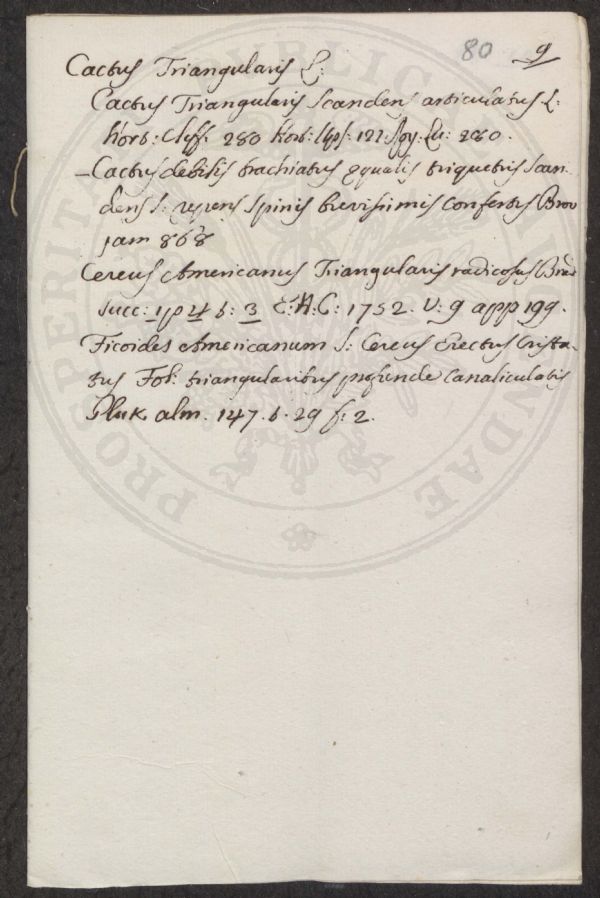 80 9
Cactus Triangularis L:
Cactus Triangularis Scandens articulatus L:
hort: Cliff: 280 hort: Ups: 121. Roy: Lu: 280.
- Cactus debilis brachiatus equalis triquetris Scan-
dens S: repens Spinis brevissimis Confertus Brow
jam 868
Cereus Americanus Triangularis radicosus Brad
Succ: 1 p 4 t: 3 E: A: C: 1752. V: 9 app 199.
Ficoides Americanum S: Cereus Erectus Crista-
tus Fol: triangularibus profunde Canaliculatis
Pluk alm. 147. t. 29 f: 2.
PROSPERITATI PUBLICAE AUGENDAE